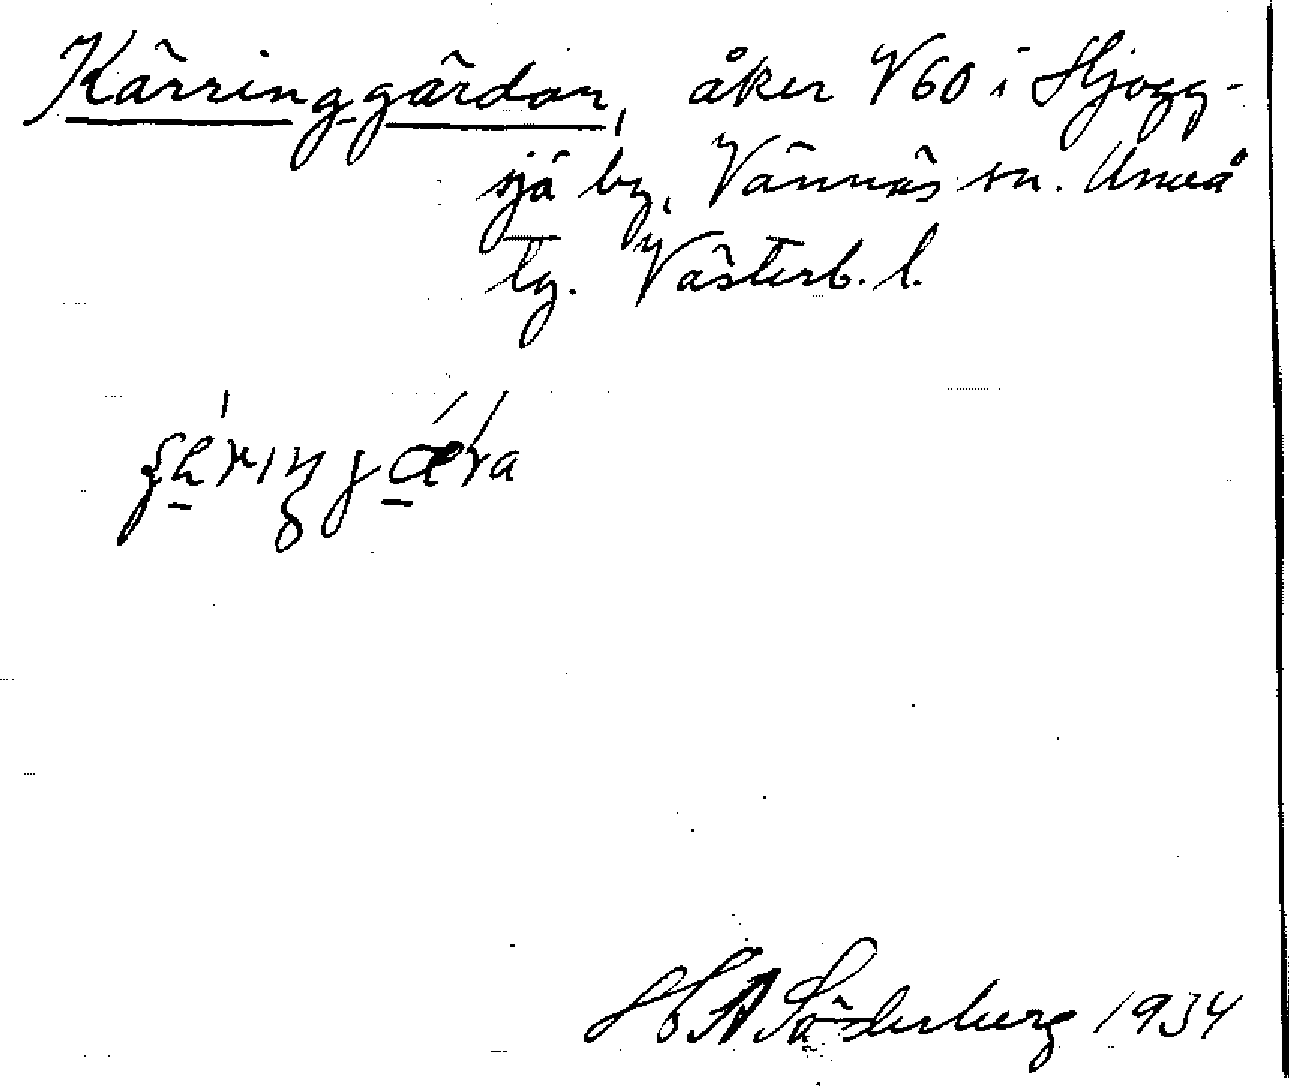 Kärringgärdan, åker V60 i Hjogg-
sjö by, Vännäs sn. Umeå
tg. Västerb. l.
H S A Söderberg 1934